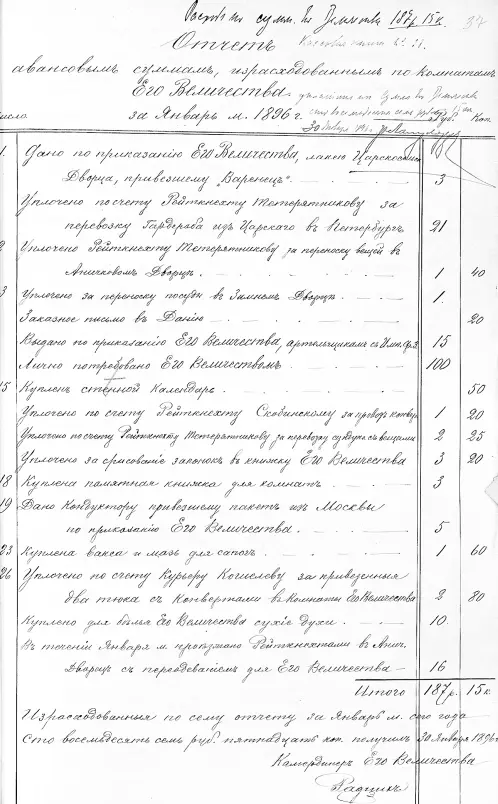 187 р. 15 к.
37
Отчетъ
авансовымъ суммамъ, израсходованнымъ по комнатамъ
Его Величества
за Январь м. 1896 г.
число
Руб. Коп.
1. Дано по приказанію Его Величества, лакею Царскосельск
Дворца, привезшему "Варенецъ" 3
Уплочено по счету Рейткнехту Тетерятникову за
перевозку Гардероба изъ Царскаго въ Петербургъ 21
2 Уплочено Рейткнехту Тетерятникову за переноску вещей въ
Аничковомъ Дворцѣ 1 40
3 Уплочено за переноску посуды въ Зимнемъ Дворцѣ 1.
Заказное письмо въ Данію 20
Выдано по приказанію Его Величества, артельщикамъ 15
Лично потребовано Его Величествомъ 100
15 Купленъ стѣнной Календарь 50
Уплочено по счету Рейткнехту Скобинскому за 1 20
Уплочено по счету Рейткнехту Тетерятникову за перевозку сундука съ вещами 2 25
Уплочено за срисованіе запонокъ въ книжку Его Величества 3 20
18 Куплена памятная книжка для комнатъ 3
19 Дано Кондуктору привезшему пакетъ изъ Москвы
по приказанію Его Величества 5
23 Куплена вакса и мазь для сапогъ 1 60
26 Уплочено по счету Курьеру за приведенныя
два тюка съ конвертами въ комнаты Его Величества 2 80
Куплено для бѣлья Его Величества сухіе духи 10.
Въ теченіи Января м. Рейткнехтами въ Анич.
Дворецъ съ переодеваніемъ для Его Величества 16
Итого 187 р. 15 к.
Израсходованныя по сему отчету за Январь м. сего года
Сто восемьдесятъ семь руб. пятнадцать коп. получилъ 30 Января 1896 г.
Камердинеръ Его Величества
Радцихъ